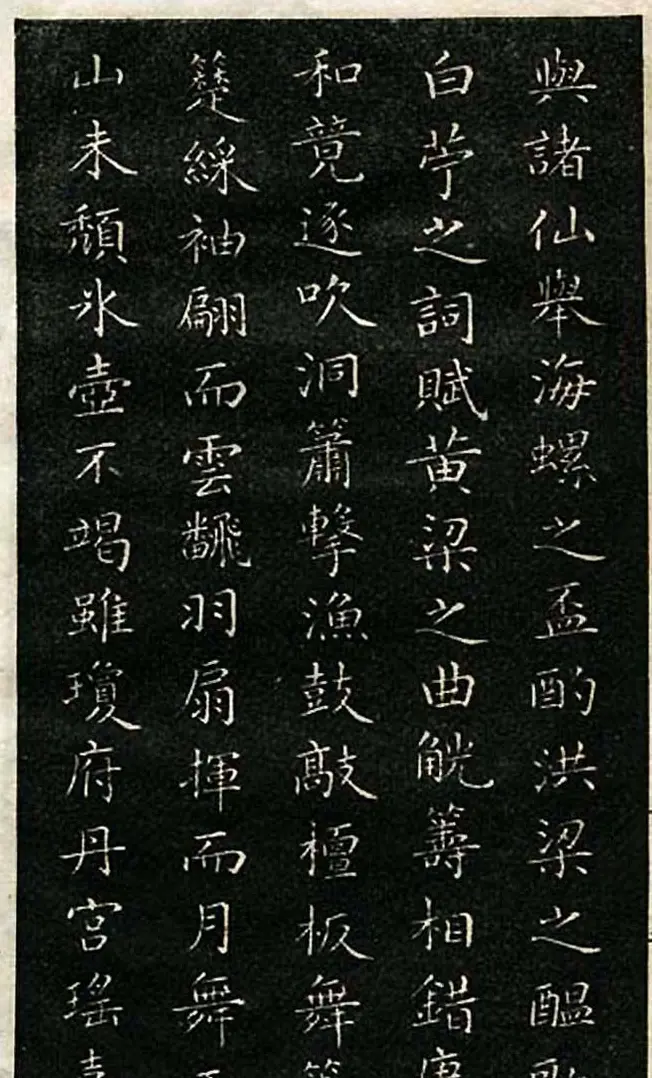 與諸仙舉海螺之盃酌洪梁之醞歌
白苧之詞賦黃粱之曲觥籌相錯
和競逐吹洞簫擊漁鼓敲檀板舞
簉綵袖翩而雲飜羽扇揮而月舞
山未頹氷壺不竭雖瓊府丹宮瑤